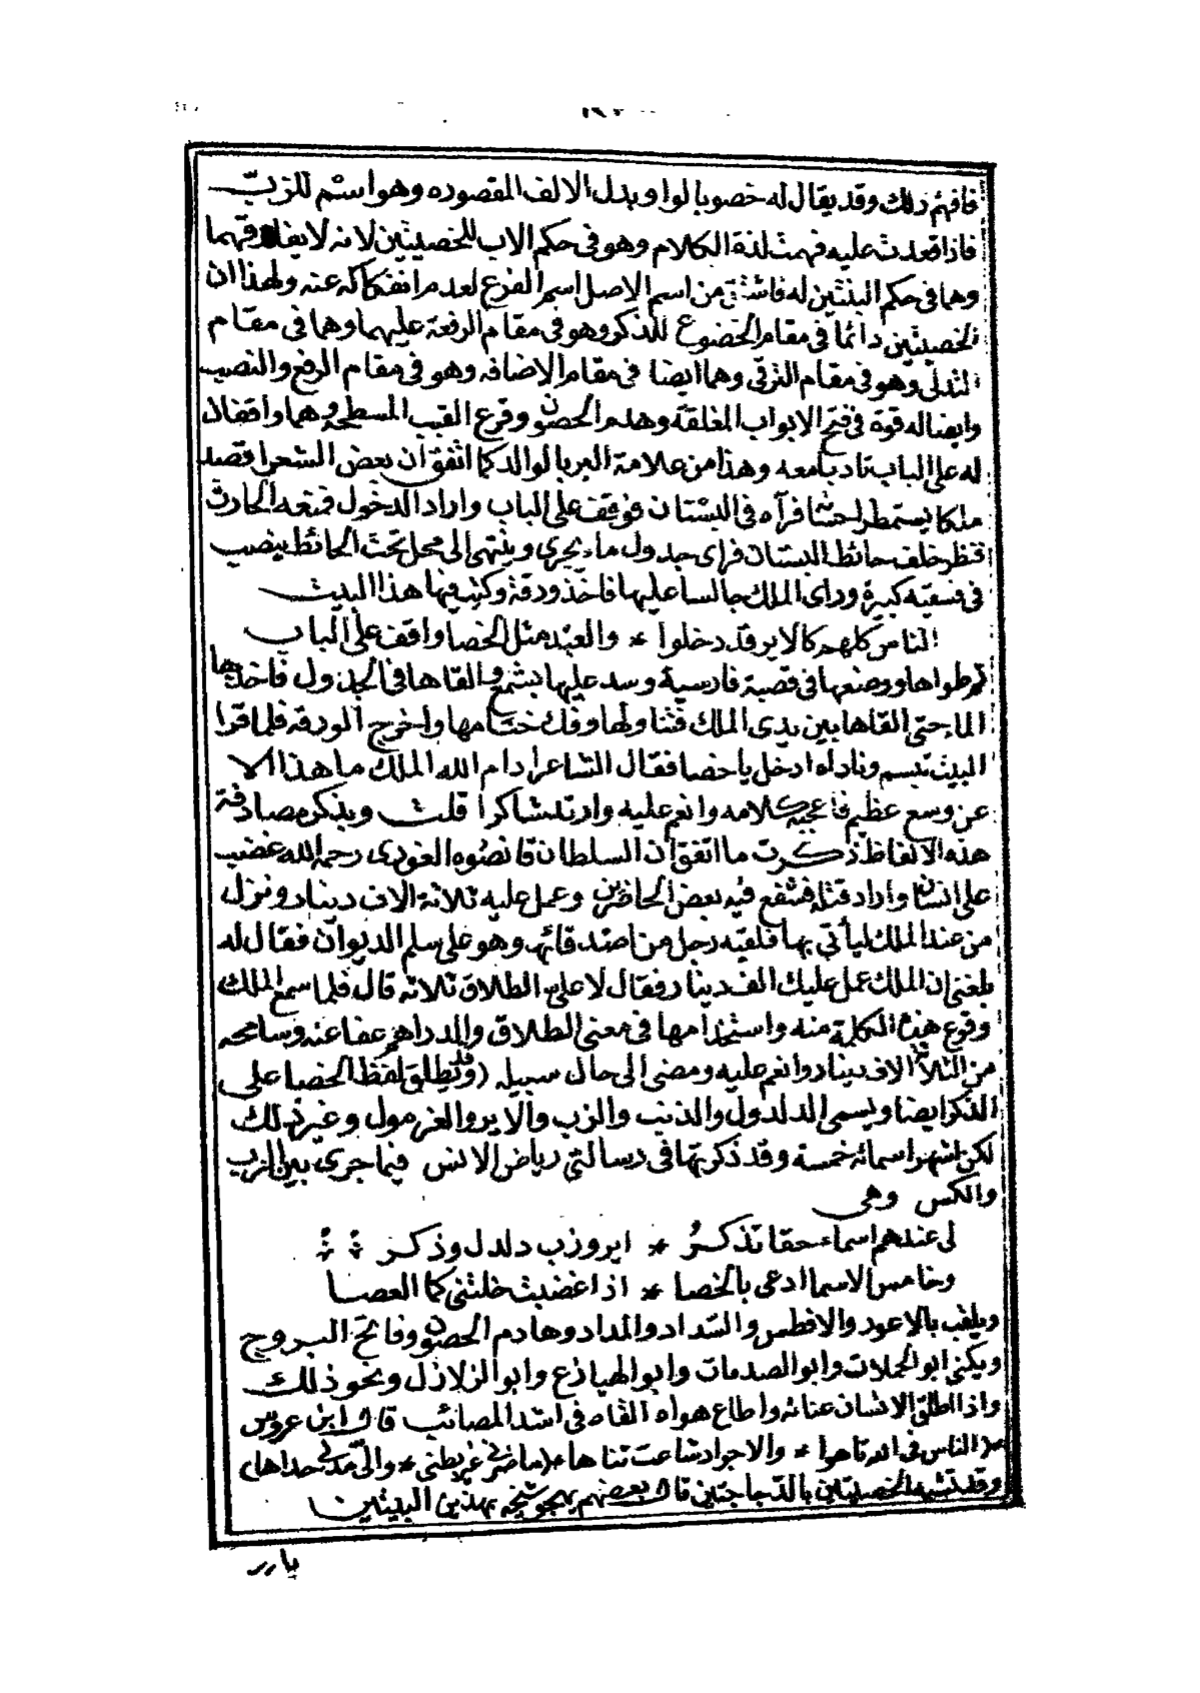 فافهم ذلك وقد يقال له خصو بالواو بدل الالف المقصوره وهو اسم للزب
فاذا قعدت عليه فهمت لذة الكلام وهو في حكم الاب للخصيتين لانه لا يفارقهما
وهما في حكم البنتين له فاشتق من اسم الاصل اسم الفرع لعدم انفكاكه عنه ولهذا ان
الخصيتين دائما في مقام الخضوع للذكر وهو في مقام الرفعة عليهما وهما في مقام
التدلى وهو في مقام الترقى وهما ايضا في مقام الاضافه وهو في مقام الرفع والنصب
وايضا له قوة في فتح الابواب المغلقة وهدم الحصون وقرع القبب المسطحة وهما واقفان
له على الباب تادبا معه وهذا من علامة البر بالوالد كما اتفق ان بعض الشعرا قصد
ملكا يستمطر احسانه فرآه في البستان فوقف على الباب واراد الدخول فمنعه الحارث
فنظر خلف حائط البستان فراى جدول ماء يجرى وينتهى الى محل تحت الحائط ينصب
في فسقيه كبيرة وراى الملك جالسا عليها فاخذ ورقة وكتب فيها هذا البيت
الناس كلهم كالاير قد دخلوا * والعبد مثل الخصا واقف على الباب
ثم طواها ووضعها في قصبة فارسية وسد عليها بشمع والقاها في الجدول فاخذها
الماء حتى القاها بين يدى الملك فتناولها وفك ختامها واخرج الورقه فلما قرا
البيت تبسم وناداه ادخل يا خصا فقال الشاعر ادام الله الملك ما هذا الا
عن وسع عظيم فاعجبه كلامه وانعم عليه وارتد شاكرا قلت وبذكر مصادفة
هذه الالفاظ ذكرت ما اتفق ان السلطان قانصوه الغورى رحمه الله غضب
على انسان واراد قتله فشفع فيه بعض الحاضرين وعمل عليه ثلاثة الاف دينار ونزل
من عند الملك ليأتى بها فلقيه رجل من اصدقائه وهو على سلم الديوان فقال له
بلغنى ان الملك عمل عليك الف دينار فقال لا على الطلاق ثلاثه قال فلما سمع الملك
وقوع هذه الكلمة منه واستخدامها في معنى الطلاق والدراهم عفا عنه وسامحه
من الثلاثة الاف دينار وانعم عليه ومضى الى حال سبيله (وقد يطلق لفظ الخصا على
الذكر ايضا ويسمى الدلدول والذنب والزب والاير والغرمول وغير ذلك
لكن اشهر اسمائه خمسة وقد ذكرتها في رسالتى رياض الانس فيما جرى بين الزب
والكس وهى
لى عندهم اسماء حقا تذكر * اير وزب دلدل وذكر
وخامس الاسما ادعى بالخصا * اذا غضبت خلتنى كما العصا
ويلقب بالاعور والافطس والسداد والمداد وهادم الحصون وفاتح البروج
ويكنى ابو الحملات وابو الصدمات وابو الهيازع وابو الزلازل ونحو ذلك
واذا اطلق الانسان عنانه واطاع هواه القاه في اشد المصائب قال ابن عروس
(الناس في الله تاهوا * والاجواد شاعت ثناها (ما ضرنى غير بطنى * والى حداها)
وقد تشبه الخصيتين بالدجاجتين قال بعضهم يهجو شيخه بهذين البيتين
يارر